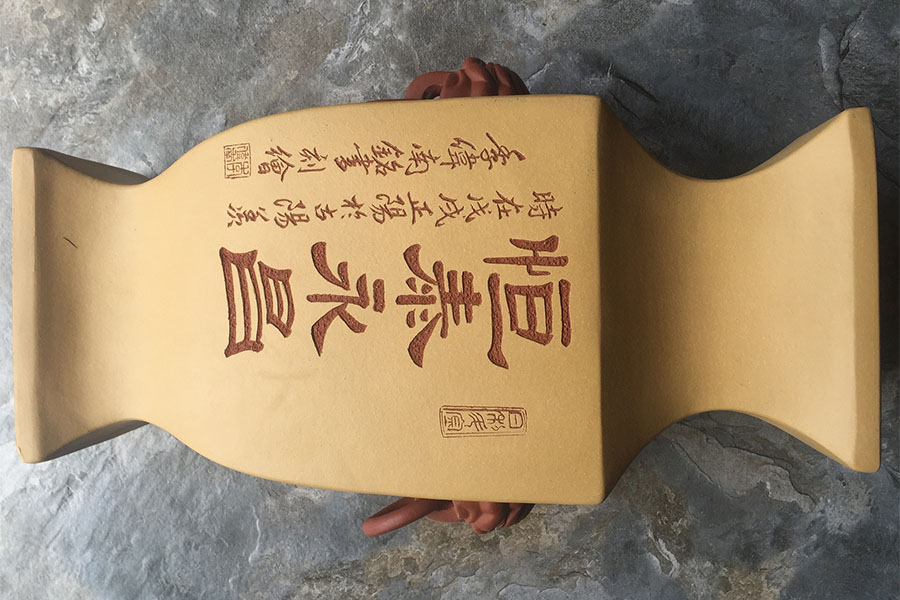 恒泰永昌
時在戊戌正陽於古陽羨
銘書刻繪